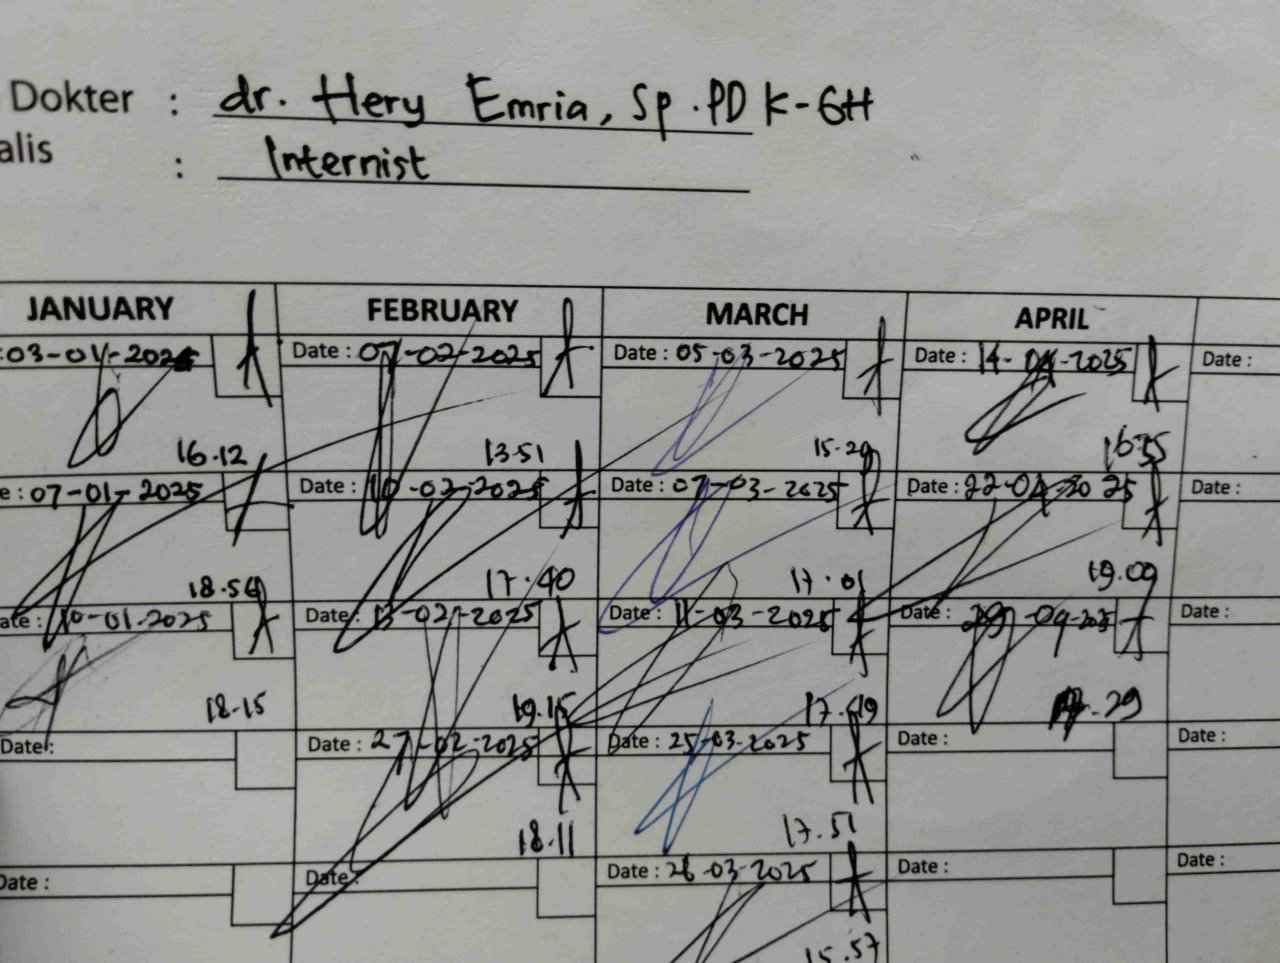 Dokter : dr. Hery Emria, Sp.PD K-GH
alis : Internist
JANUARY FEBRUARY MARCH APRIL
:03-01-2025 Date : 07-02-2025 Date : 05-03-2025 Date : 14-04-2025 Date :
16.12 13.51 15.29 16.55
e : 07-01-2025 Date : 10-02-2025 Date : 07-03-2025 Date : 22-04-2025 Date :
18.54 17.40 17.01 19.09
ate : 10-01-2025 Date : 13-02-2025 Date : 11-03-2025 Date : 29-04-2025 Date :
18.15 19.15 17.49 .29
Date : Date : 27-02-2025 Date : 25-03-2025 Date : Date :
18.11 17.51
Date : Date : Date : 26-03-2025 Date : Date :
15.57